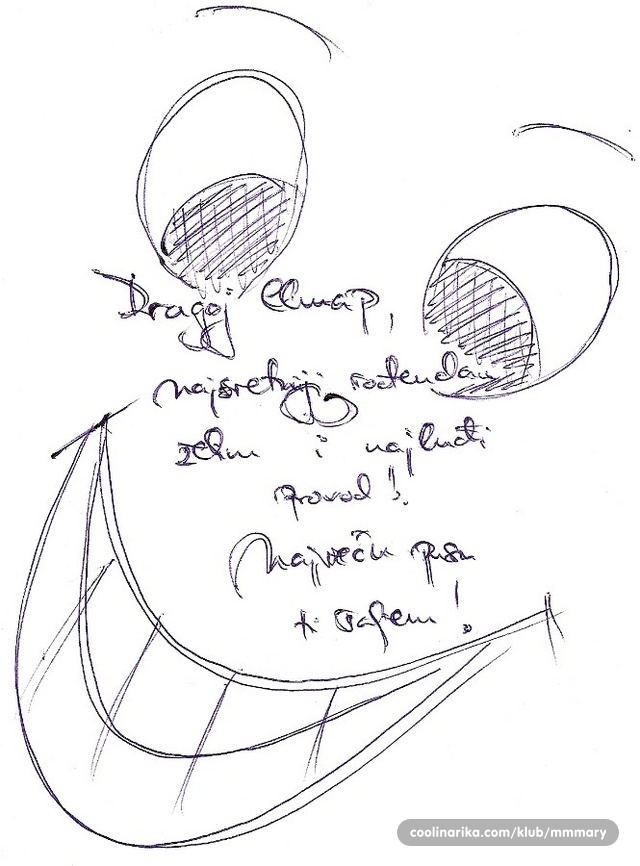 Dragoj
najsretniji rođendan
želim i najluđi
provod!
Najveću pusu
ti šaljem!
coolinarika.com/klub/mmmary